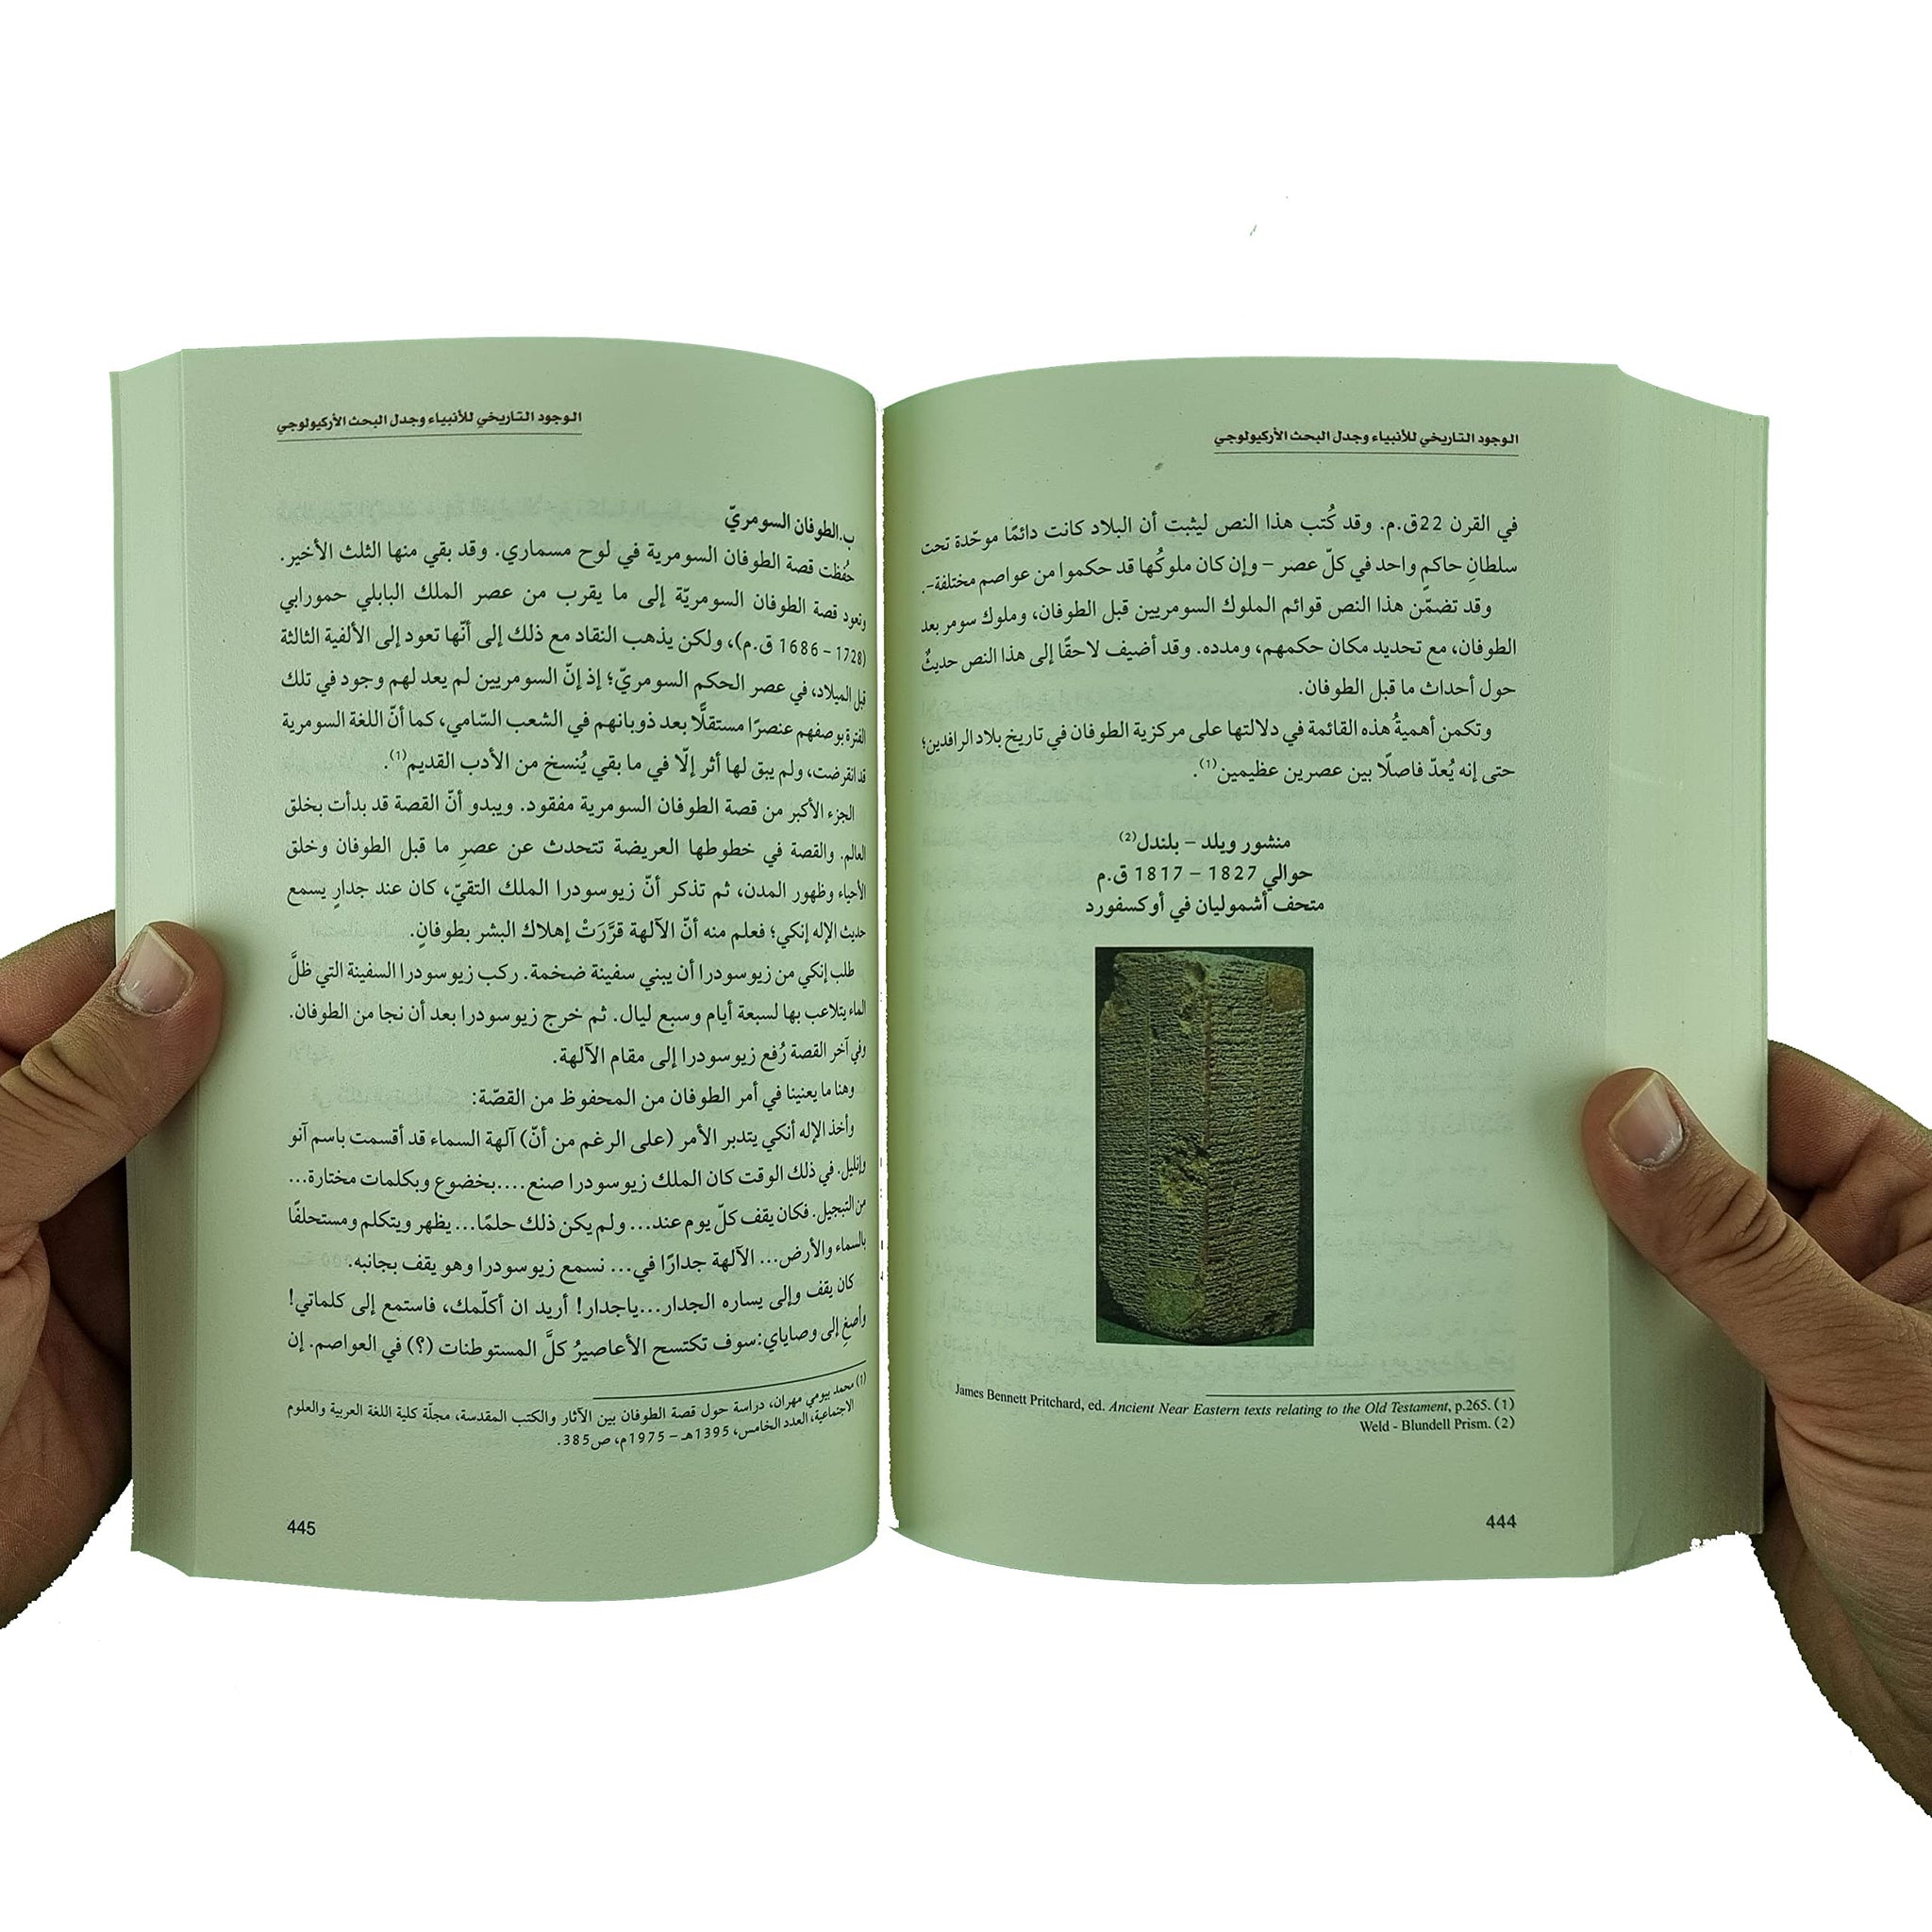 الوجود التاريخي للأنبياء وجدل البحث الأركيولوجي
في القرن 22ق.م. وقد كُتب هذا النص ليثبت أن البلاد كانت دائمًا موحّدة تحت
سلطانِ حاكمٍ واحد في كلّ عصر – وإن كان ملوكُها قد حكموا من عواصم مختلفة-.
وقد تضمّن هذا النص قوائم الملوك السومريين قبل الطوفان، وملوك سومر بعد
الطوفان، مع تحديد مكان حكمهم، ومدده. وقد أضيف لاحقًا إلى هذا النص حديثٌ
حول أحداث ما قبل الطوفان.
وتكمن أهميةُ هذه القائمة في دلالتها على مركزية الطوفان في تاريخ بلاد الرافدين؛
حتى إنه يُعدّ فاصلًا بين عصرين عظيمين(1).
منشور ويلد – بلندل(2)
حوالي 1827 – 1817 ق.م
متحف أشموليان في أوكسفورد
James Bennett Pritchard, ed. Ancient Near Eastern texts relating to the Old Testament, p.265. (1)
Weld - Blundell Prism. (2)
444
الوجود التاريخي للأنبياء وجدل البحث الأركيولوجي
ب.الطوفان السومريّ
حُفظت قصة الطوفان السومرية في لوح مسماري. وقد بقي منها الثلث الأخير.
وتعود قصة الطوفان السومريّة إلى ما يقرب من عصر الملك البابلي حمورابي
(1728 – 1686 ق.م)، ولكن يذهب النقاد مع ذلك إلى أنّها تعود إلى الألفية الثالثة
قبل الميلاد، في عصر الحكم السومريّ؛ إذ إنّ السومريين لم يعد لهم وجود في تلك
الفترة بوصفهم عنصرًا مستقلًّا بعد ذوبانهم في الشعب السّامي، كما أنّ اللغة السومرية
قد انقرضت، ولم يبق لها أثر إلّا في ما بقي يُنسخ من الأدب القديم(1).
الجزء الأكبر من قصة الطوفان السومرية مفقود. ويبدو أنّ القصة قد بدأت بخلق
العالم. والقصة في خطوطها العريضة تتحدث عن عصرِ ما قبل الطوفان وخلق
الأحياء وظهور المدن، ثم تذكر أنّ زيوسودرا الملك التقيّ، كان عند جدارٍ يسمع
حديث الإله إنكي؛ فعلم منه أنّ الآلهة قرَّرَتْ إهلاك البشر بطوفانٍ.
طلب إنكي من زيوسودرا أن يبني سفينة ضخمة. ركب زيوسودرا السفينة التي ظلَّ
الماء يتلاعب بها لسبعة أيام وسبع ليال. ثم خرج زيوسودرا بعد أن نجا من الطوفان.
وفي آخر القصة رُفع زيوسودرا إلى مقام الآلهة.
وهنا ما يعنينا في أمر الطوفان من المحفوظ من القصّة:
وأخذ الإله أنكي يتدبر الأمر (على الرغم من أنّ) آلهة السماء قد أقسمت باسم آنو
وإنليل. في ذلك الوقت كان الملك زيوسودرا صنع....بخضوع وبكلمات مختارة...
من التبجيل. فكان يقف كلّ يوم عند... ولم يكن ذلك حلمًا... يظهر ويتكلم ومستحلفًا
بالسماء والأرض... الآلهة جدارًا في... نسمع زيوسودرا وهو يقف بجانبه.
كان يقف وإلى يساره الجدار...ياجدار! أريد ان أكلّمك، فاستمع إلى كلماتي!
وأصغِ إلى وصاياي:سوف تكتسح الأعاصيرُ كلَّ المستوطنات (؟) في العواصم. إن
(1) محمد بيومي مهران، دراسة حول قصة الطوفان بين الآثار والكتب المقدسة، مجلّة كلية اللغة العربية والعلوم
الاجتماعية، العدد الخامس، 1395هـ – 1975م، ص385.
445